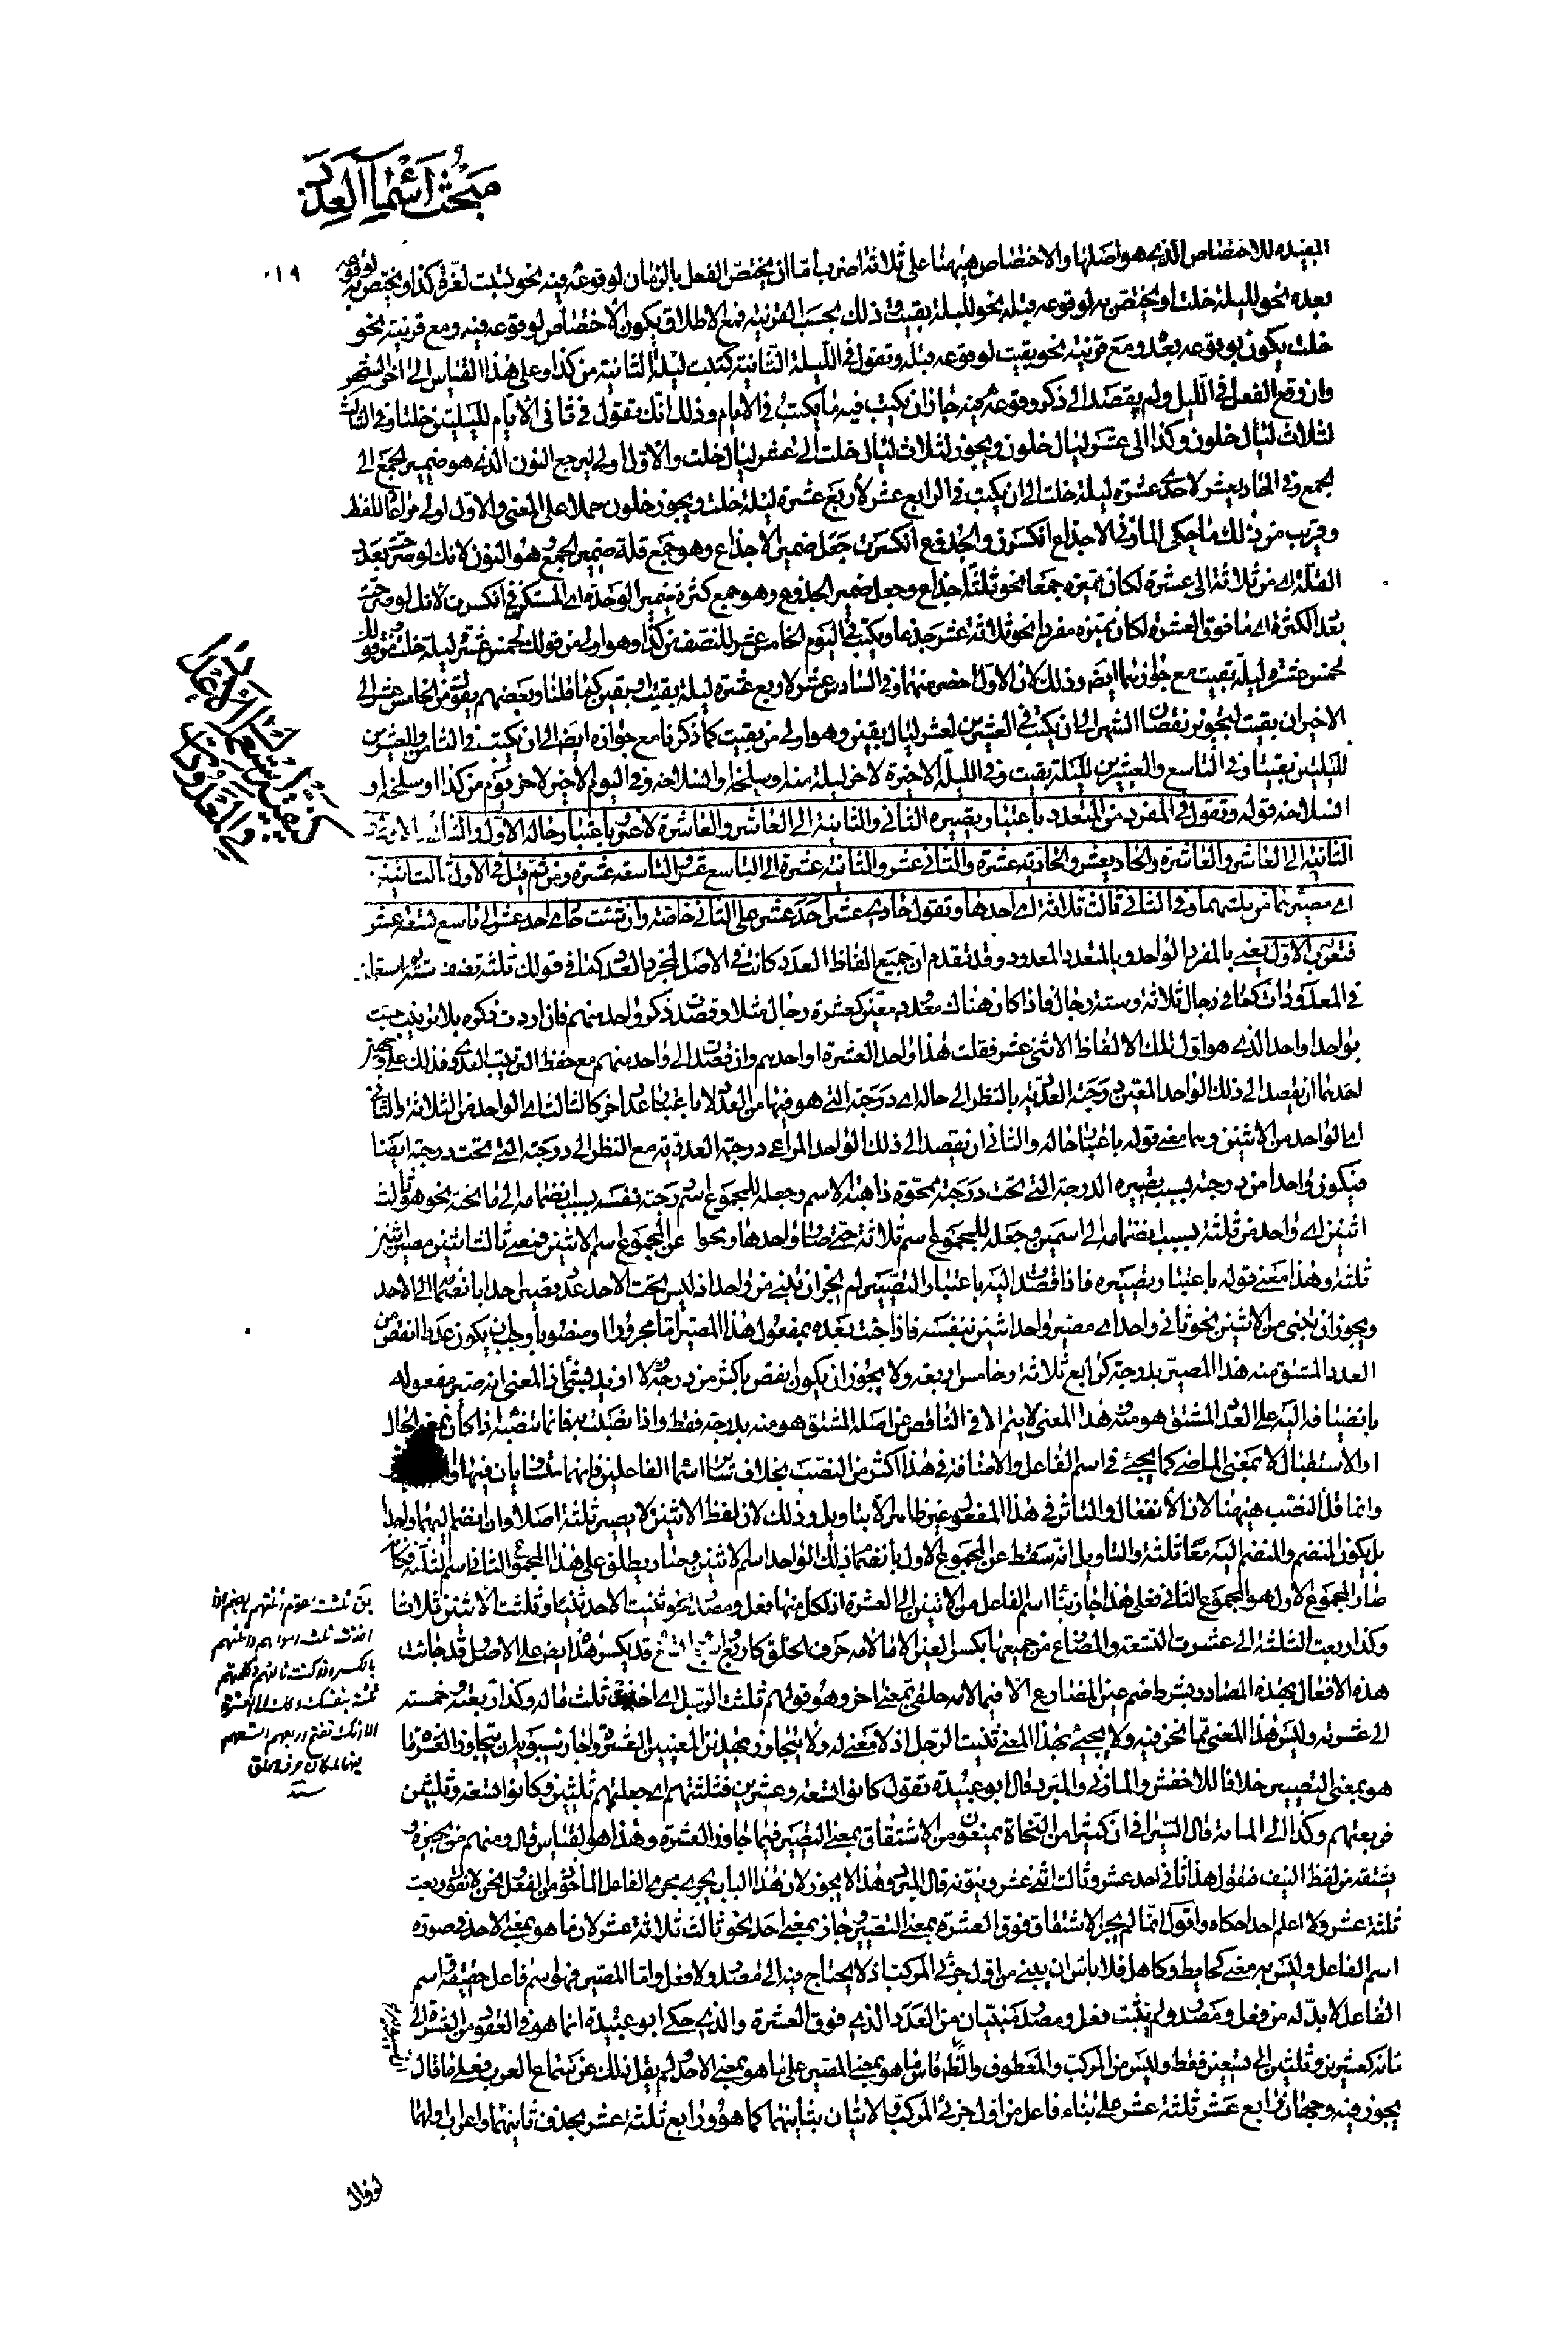 مبحث اسماء العدد
المفيدة للاختصاص الذي هو اصلها والاختصاص ههنا على ثلاثة اضرب اما ان يختص الفعل بالزمان لوقوعه فيه نحو كتبت لغرة كذا او يختص به لوقوعه
بعده نحو لليلة خلت او يختص به لوقوعه قبله نحو لليلة بقيت وذلك بحسب القرينة فمع الاطلاق يكون الاختصاص لوقوعه فيه ومع قرينة نحو
خلت يكون لوقوعه بعده ومع قرينة نحو بقيت لوقوعه قبله وتقول في الليلة الثانية كتبت ليلة الثانية من كذا وعلى هذا القياس الى اخر الشهر
وان وقع الفعل في الليل ولم يقصد الى ذكر وقوعه فيه جاز ان يكتب فيه ما يكتب في الايام وذلك انك تقول في ثاني الايام لليلتين خلتا وفي الثالث
لثلاث ليال خلون وكذا الى عشر ليال خلون ويجوز لثلاث ليال خلت الى عشر ليال خلت والاول اولى ليرجع النون الذي هو ضمير الجمع الى
الجمع وفي الحادي عشر لاحدى عشرة ليلة خلت الى ان يكتب في الرابع عشر لاربع عشرة ليلة خلت ويجوز خلون حملا على المعنى والاول اولى مراعاة للفظ
وقريب من ذلك ما حكى المازني الاجذاع انكسرن والجذوع انكسرت جعل ضمير الاجذاع وهو جمع قلة ضمير الجمع هو النون لانك لو صرحت بعدد
القلة اي من ثلاثة الى عشرة لكان مميزه جمعا نحو ثلثة اجذاع وجعل ضمير الجذوع وهو جمع كثرة ضمير الوحدة اي المستكن في انكسرت لانك لو صرحت
بعدد الكثرة اي ما فوق العشرة لكان مميزه مفردا نحو ثلاثة عشر جذعا ويكتب في اليوم الخامس عشر للنصف من كذا وهو اولى من قولك لخمس عشرة ليلة خلت ومن قولك
لخمس عشرة ليلة بقيت مع جوازهما ايضا وذلك لان الاول اخصر منهما وفي السادس عشر لاربع عشرة ليلة بقيت او بقين كما قلنا وبعضهم يقول من الخامس عشر الى
الاخير ان بقيت لتجويز نقصان الشهر الى ان يكتب في العشرين لعشر ليال بقين وهو اولى من بقيت كما ذكرنا مع جوازه ايضا الى ان يكتب في الثامن والعشرين
لليلتين بقيتا وفي التاسع والعشرين لليلة بقيت وفي الليلة الاخيرة لاخر ليلة منه او سلخه او انسلاخه وفي اليوم الاخير لاخر يوم من كذا او سلخه او
انسلاخه قوله وتقول في المفرد من المتعدد باعتبار تصييره الثاني والثانية الى العاشر والعاشرة لا غير وباعتبار حاله الاول والثاني والاولى و
الثانية الى العاشر والعاشرة والحادي عشر والحادية عشرة والثاني عشر والثانية عشرة الى التاسع عشر والتاسعة عشرة ومن ثم قيل في الاول ثالث اثنين
اي مصيرهما من ثلثتهما وفي الثاني ثالث ثلاثة اي احدها وتقول حادي عشر احد عشر على الثاني خاصة وان شئت حادي احد عشر الى تاسع تسعة عشر
فتعرب الاول يعني بالمفرد الواحد وبالمتعدد المعدود وقد تقدم ان جميع الفاظ العدد كانت في الاصل لمجرد العدد كما في قولك ثلثة نصف ستة ثم استعملت
في المعدودات كما في رجال ثلاثة وستة رجال فاذا كان هناك معدود معين كعشرة رجال مثلا وقصدت ذكر واحد منهم فان اردت ذكره بلا ترتيب جئت
بواحد او احد الذي هو اول تلك الالفاظ الاثني عشر فقلت هذا واحد العشرة او احدهم وان قصدت الى واحد منهم مع حفظ الترتيب العددي فذلك على وجهين
احدهما ان يقصد الى ذلك الواحد المعين درجته العددية بالنظر الى حاله اي درجته التي هو فيها من العدد لا باعتبار عدد اخر كالثالث اي الواحد من الثلاثة والثاني
اي الواحد من الاثنين وهما معنى قوله باعتبار حاله والثاني ان يقصد الى ذلك الواحد المراعى درجته العددية مع النظر الى درجته التي تحت درجته ايضا
فيكون واحدا من درجته بسبب تصييره الدرجة التي تحت درجته ممحوة ذاهبة الاسم وجعله للمجموع اسم درجة نفسه بسبب انضمامه الى ما تحته نحو هو ثالث
اثنين اي واحد من ثلثة بسبب انضمامه الى اسمين وجعله للمجموع اسم ثلاثة حتى صار واحدها ومحوا عن المجموع اسم الاثنين فمعنى ثالث اثنين مصير اثنين
ثلثة وهذا معنى قوله باعتبار تصييره فاذا قصدت اليه باعتبار التصيير لم يجز ان تبني من واحد اذ ليس تحت الاحد عدد يصير احدا بانضمامه الى الاحد
ويجوز ان تبني من الاثنين نحو ثاني واحد اي مصير واحد اثنين بنفسه فاذا جئت بعده بمفعول هذا المصير اما مجرورا او منصوبا وجب ان يكون عددا انقص من
العدد المشتق منه هذا المصير بدرجة كرابع ثلاثة وخامس اربعة ولا يجوز ان يكون انقص باكثر من درجة ولا ازيد بشئ اذ المعنى انه صير مفعوله
بانضيافه اليه على العدد المشتق هو منه وهذا المعنى لا يتم الا في الناقص عن اصله المشتق هو منه بدرجة فقط واذا نصبت به فانما تنصبه اذا كان بمعنى الحال
او الاستقبال لا بمعنى الماضي كما يجئ في اسم الفاعل والاضافة في هذا اكثر من النصب بخلاف سائر اسماء الفاعلين فانهما متساويان فيها
وانما قل النصب ههنا لان الانفعال والتاثر في هذا المفعول غير ظاهر الا بتاويل وذلك لان لفظ الاثنين لا يصير ثلثة اصلا وان انضم اليهما واحد
بل يكون المنضم والمنضم اليه معا ثلثة والتاويل انه سقط عن المجموع الاول بانضمام ذلك الواحد اسم الاثنين وصار يطلق على هذا المجموع الثاني اسم الثلثة فكانه
صار المجموع الاول هو المجموع الثاني فعلى هذا جاز بناء اسم الفاعل من الاثنين الى العشرة اذ لكل منها فعل ومصدر نحو ثنيت الاحد ثنيا وثلثت الاثنين ثلاثا
وكذا ربعت الثلثة الى عشرت التسعة والمضارع من جميعها بكسر العين الا ما لامه حرف الحلق كاربع قد يكسر هذا ايضا على الاصل وقد جاءت
هذه الافعال بهذه المصادر بشرط ضم عين المضارع الا فيما لامه حلقي بمعنى اخر وهو قولهم ثلثت الرجل اي اخذت ثلث ماله وكذا ربعته وخمسته
الى عشرته وليس هذا المعنى مما نحن فيه ولا يجئ بهذا المعنى ثنيت الرجل اذ لا معنى له ولا يتجاوز بهذين المعنيين العشرة واجاز سيبويه ان يتجاوز العشرة ما
هو بمعنى التصيير خلافا للاخفش والمازني والمبرد قال ابو عبيدة تقول كانوا تسعة وعشرين فثلثتهم اي جعلتهم ثلثين وكانوا تسعة وثلثين
فربعتهم وكذا الى المائة قال السيرافي ان كثيرا من النحاة يمنعون من الاشتقاق بمعنى التصيير فيما جاوز العشرة وهذا هو القياس قال ومنهم من يجيزه و
يشتقه من لفظ النيف فيقول هذا ثاني احد عشر وثالث اثني عشر وينونه قال المبرد وهذا لا يجوز لان هذا الباب يجري مجرى الفاعل الماخوذ من الفعل ونحن لا نقول ربعت
ثلثة عشر ولا اعلم احدا حكاه واقول انما لم يجز الاشتقاق فوق العشرة بمعنى التصيير وجاز بمعنى احد نحو ثالث ثلاثة عشر لان ما هو بمعنى الاحد في صورة
اسم الفاعل وليس به معنى كحايط وكاهل فلا باس ان يبنى من اول جزئي المركب اذ لا يحتاج فيه الى مصدر ولا فعل واما المصير فهو اسم فاعل حقيقة واسم
الفاعل لا بد له من فعل ومصدر ولم يثبت فعل ومصدر مبنيان من العدد الذي فوق العشرة والذي حكى ابو عبيدة انما هو في العقود من العشرة الى
مائة كعشرين وثلثين الى تسعين فقط وليس من المركب والمعطوف والظاهر انه قاس ما هو بمعنى المصير على ما هو بمعنى الاحد ولم يقل ذلك عن سماع العرب فعلى ما قال
يجوز فيه وجهان رابع عشر ثلثة عشر على بناء فاعل من اول جزئي المركب والاتيان بثانيهما كما هو ورابع ثلثة عشر بحذف ثانيهما واعراب اولهما